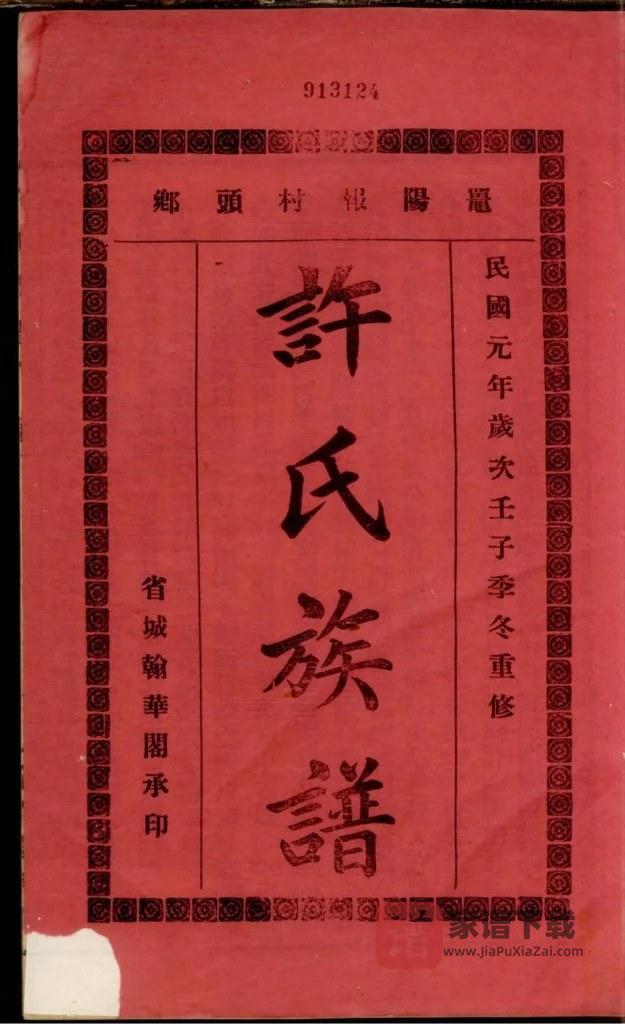 913124
鼍陽報村頭鄉
民國元年歲次壬子季冬重修
許氏族譜
省城翰華閣承印
家谱下载
www.JiaPuXiaZai.com